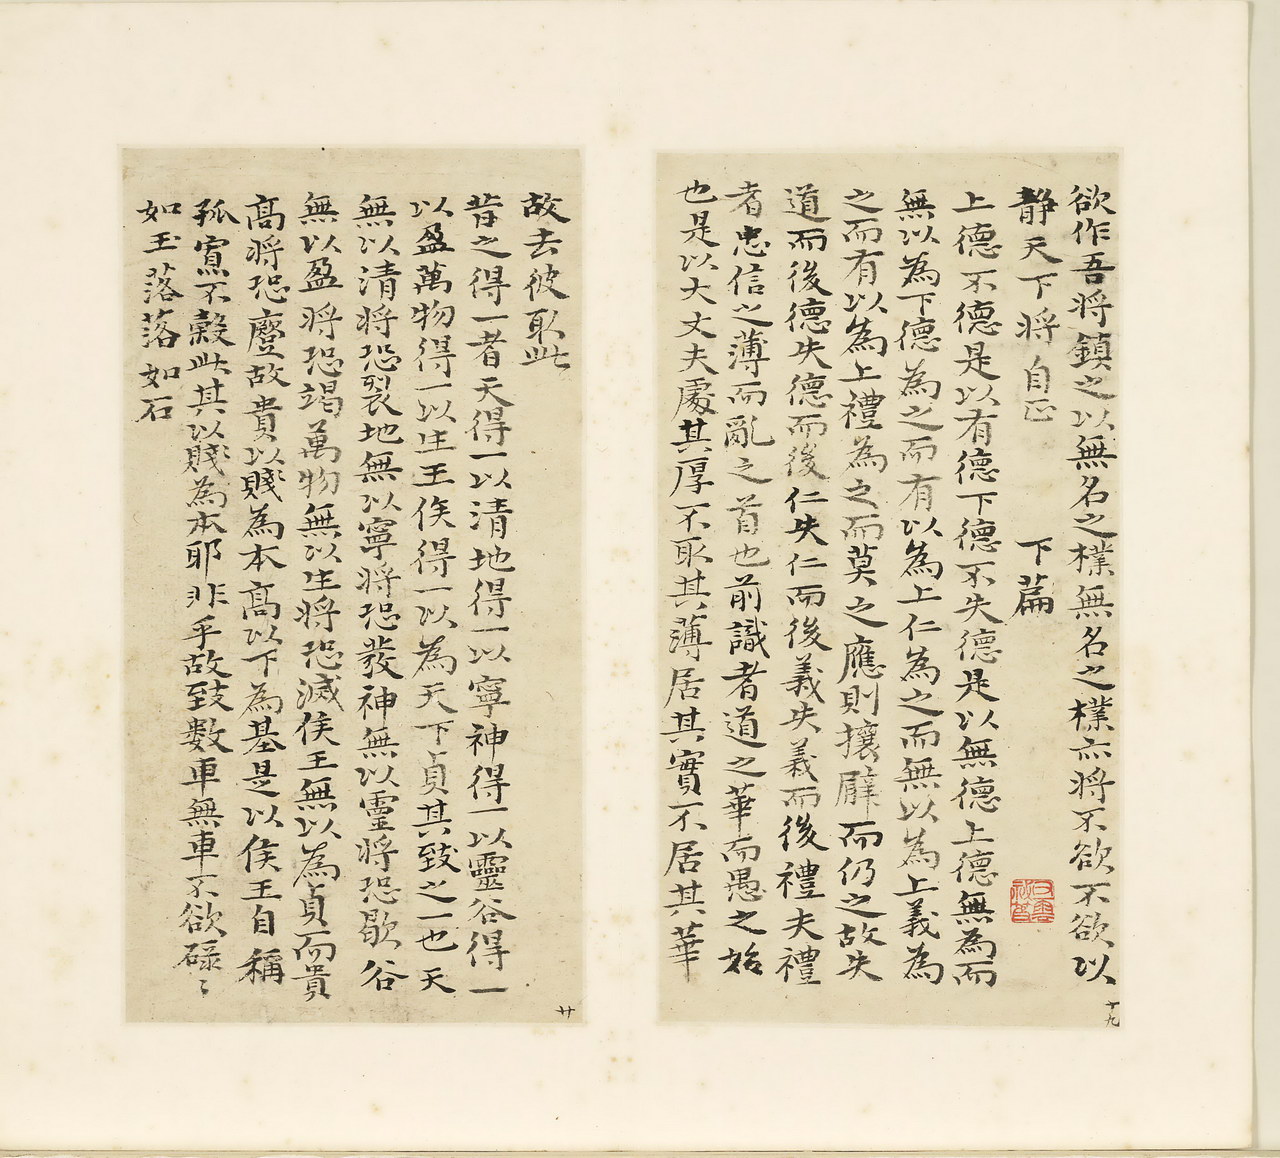 欲作吾将鎮之以無名之樸無名之樸亦将不欲不欲以
静天下将自正　　下篇
上德不德是以有德下德不失德是以無德上德無為而
無以為下德為之而有以為上仁為之而無以為上義為
之而有以為上禮為之而莫之應則攘臂而仍之故失
道而後德失德而後仁失仁而後義失義而後禮夫禮
者忠信之薄而亂之首也前識者道之華而愚之始
也是以大丈夫處其厚不取其薄居其實不居其華
十九
故去彼取此
昔之得一者天得一以清地得一以寧神得一以靈谷得一
以盈萬物得一以生王侯得一以為天下貞其致之一也天
無以清将恐裂地無以寧将恐發神無以靈将恐歇谷
無以盈将恐竭萬物無以生将恐滅侯王無以為貞而貴
高将恐蹷故貴以賤為本高以下為基是以侯王自稱
孤寡不穀此其以賤為本耶非乎故致數車無車不欲碌〻
如玉落落如石
廿